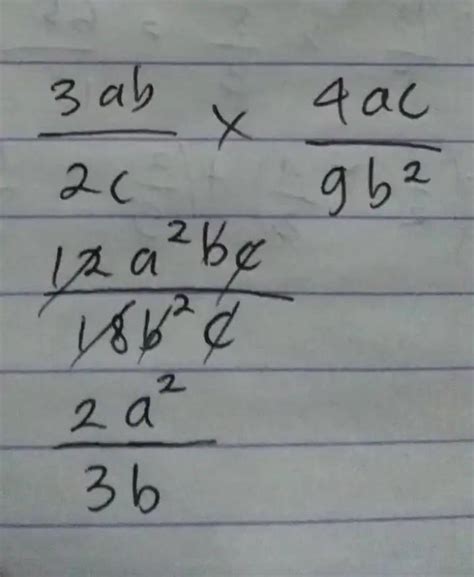 3ab × 4ac
2c 9b²
12a²bc
18b²c
2a²
3b